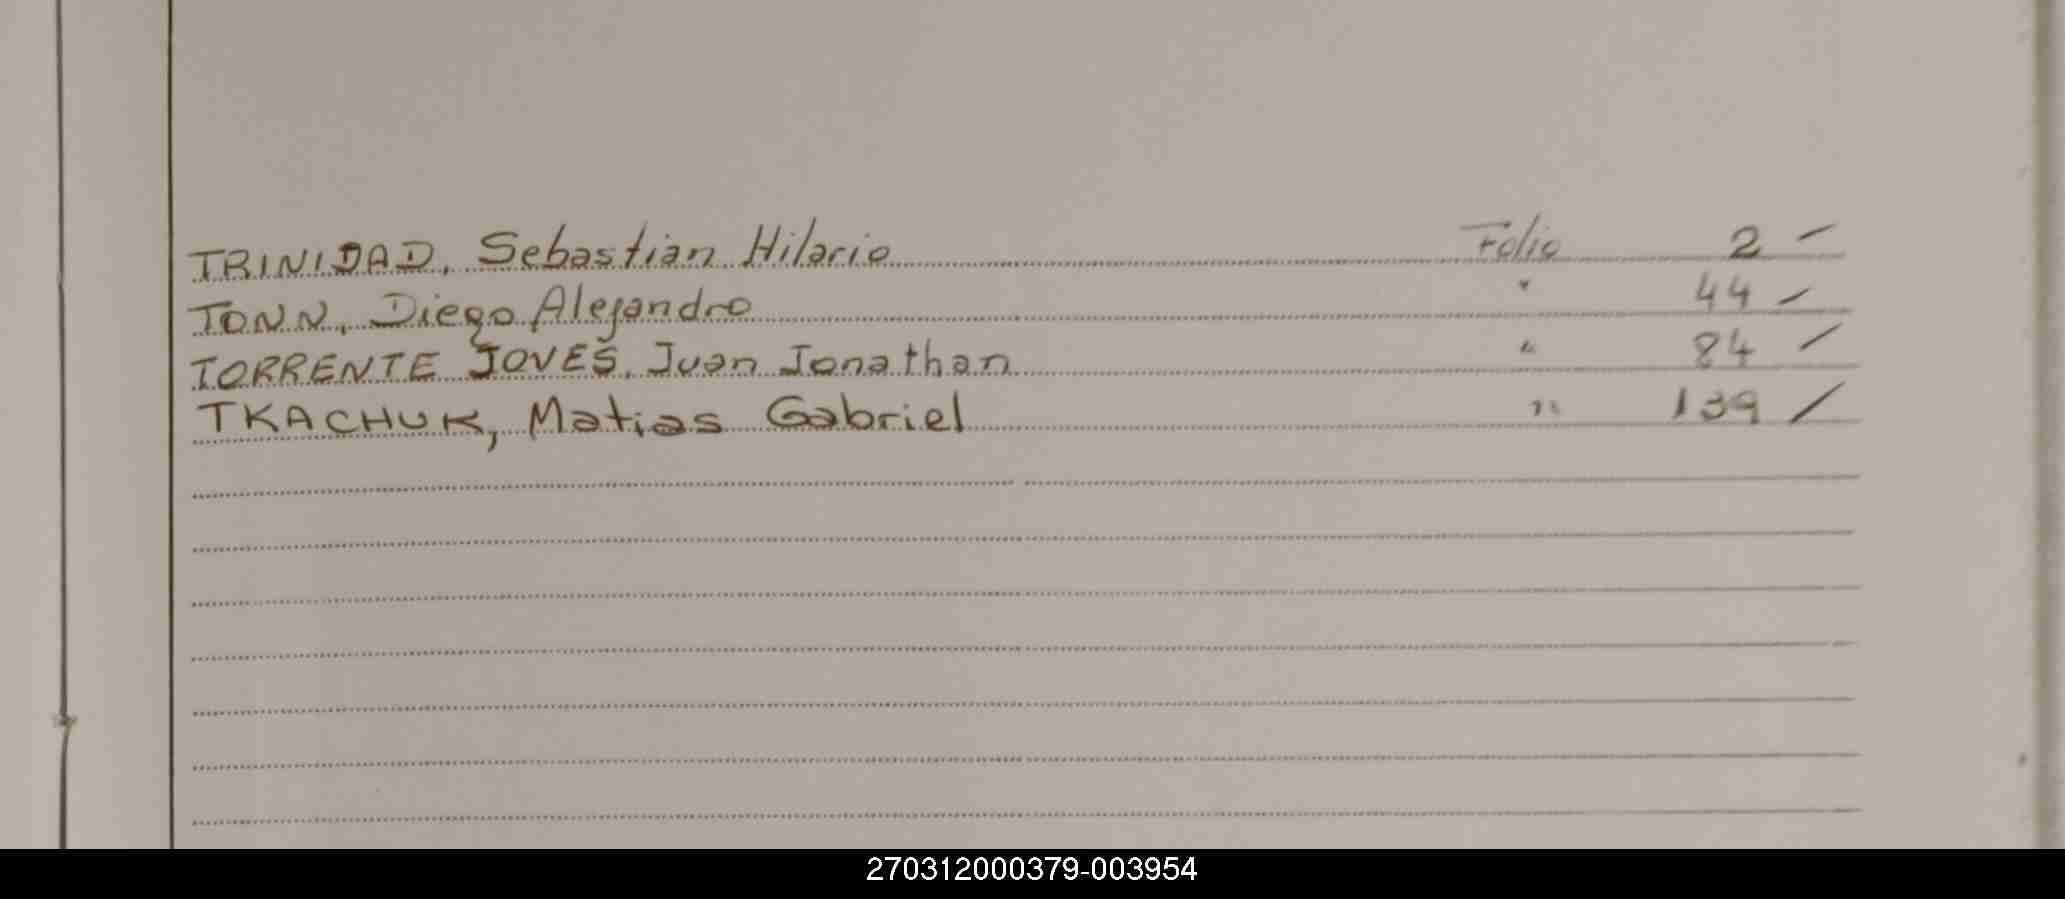 TRINIDAD, Sebastian Hilario Folio 2 -
TONN, Diego Alejandro " 44 -
TORRENTE JOVES, Juan Jonathan " 84 /
TKACHUK, Matias Gabriel " 139 /
270312000379-003954